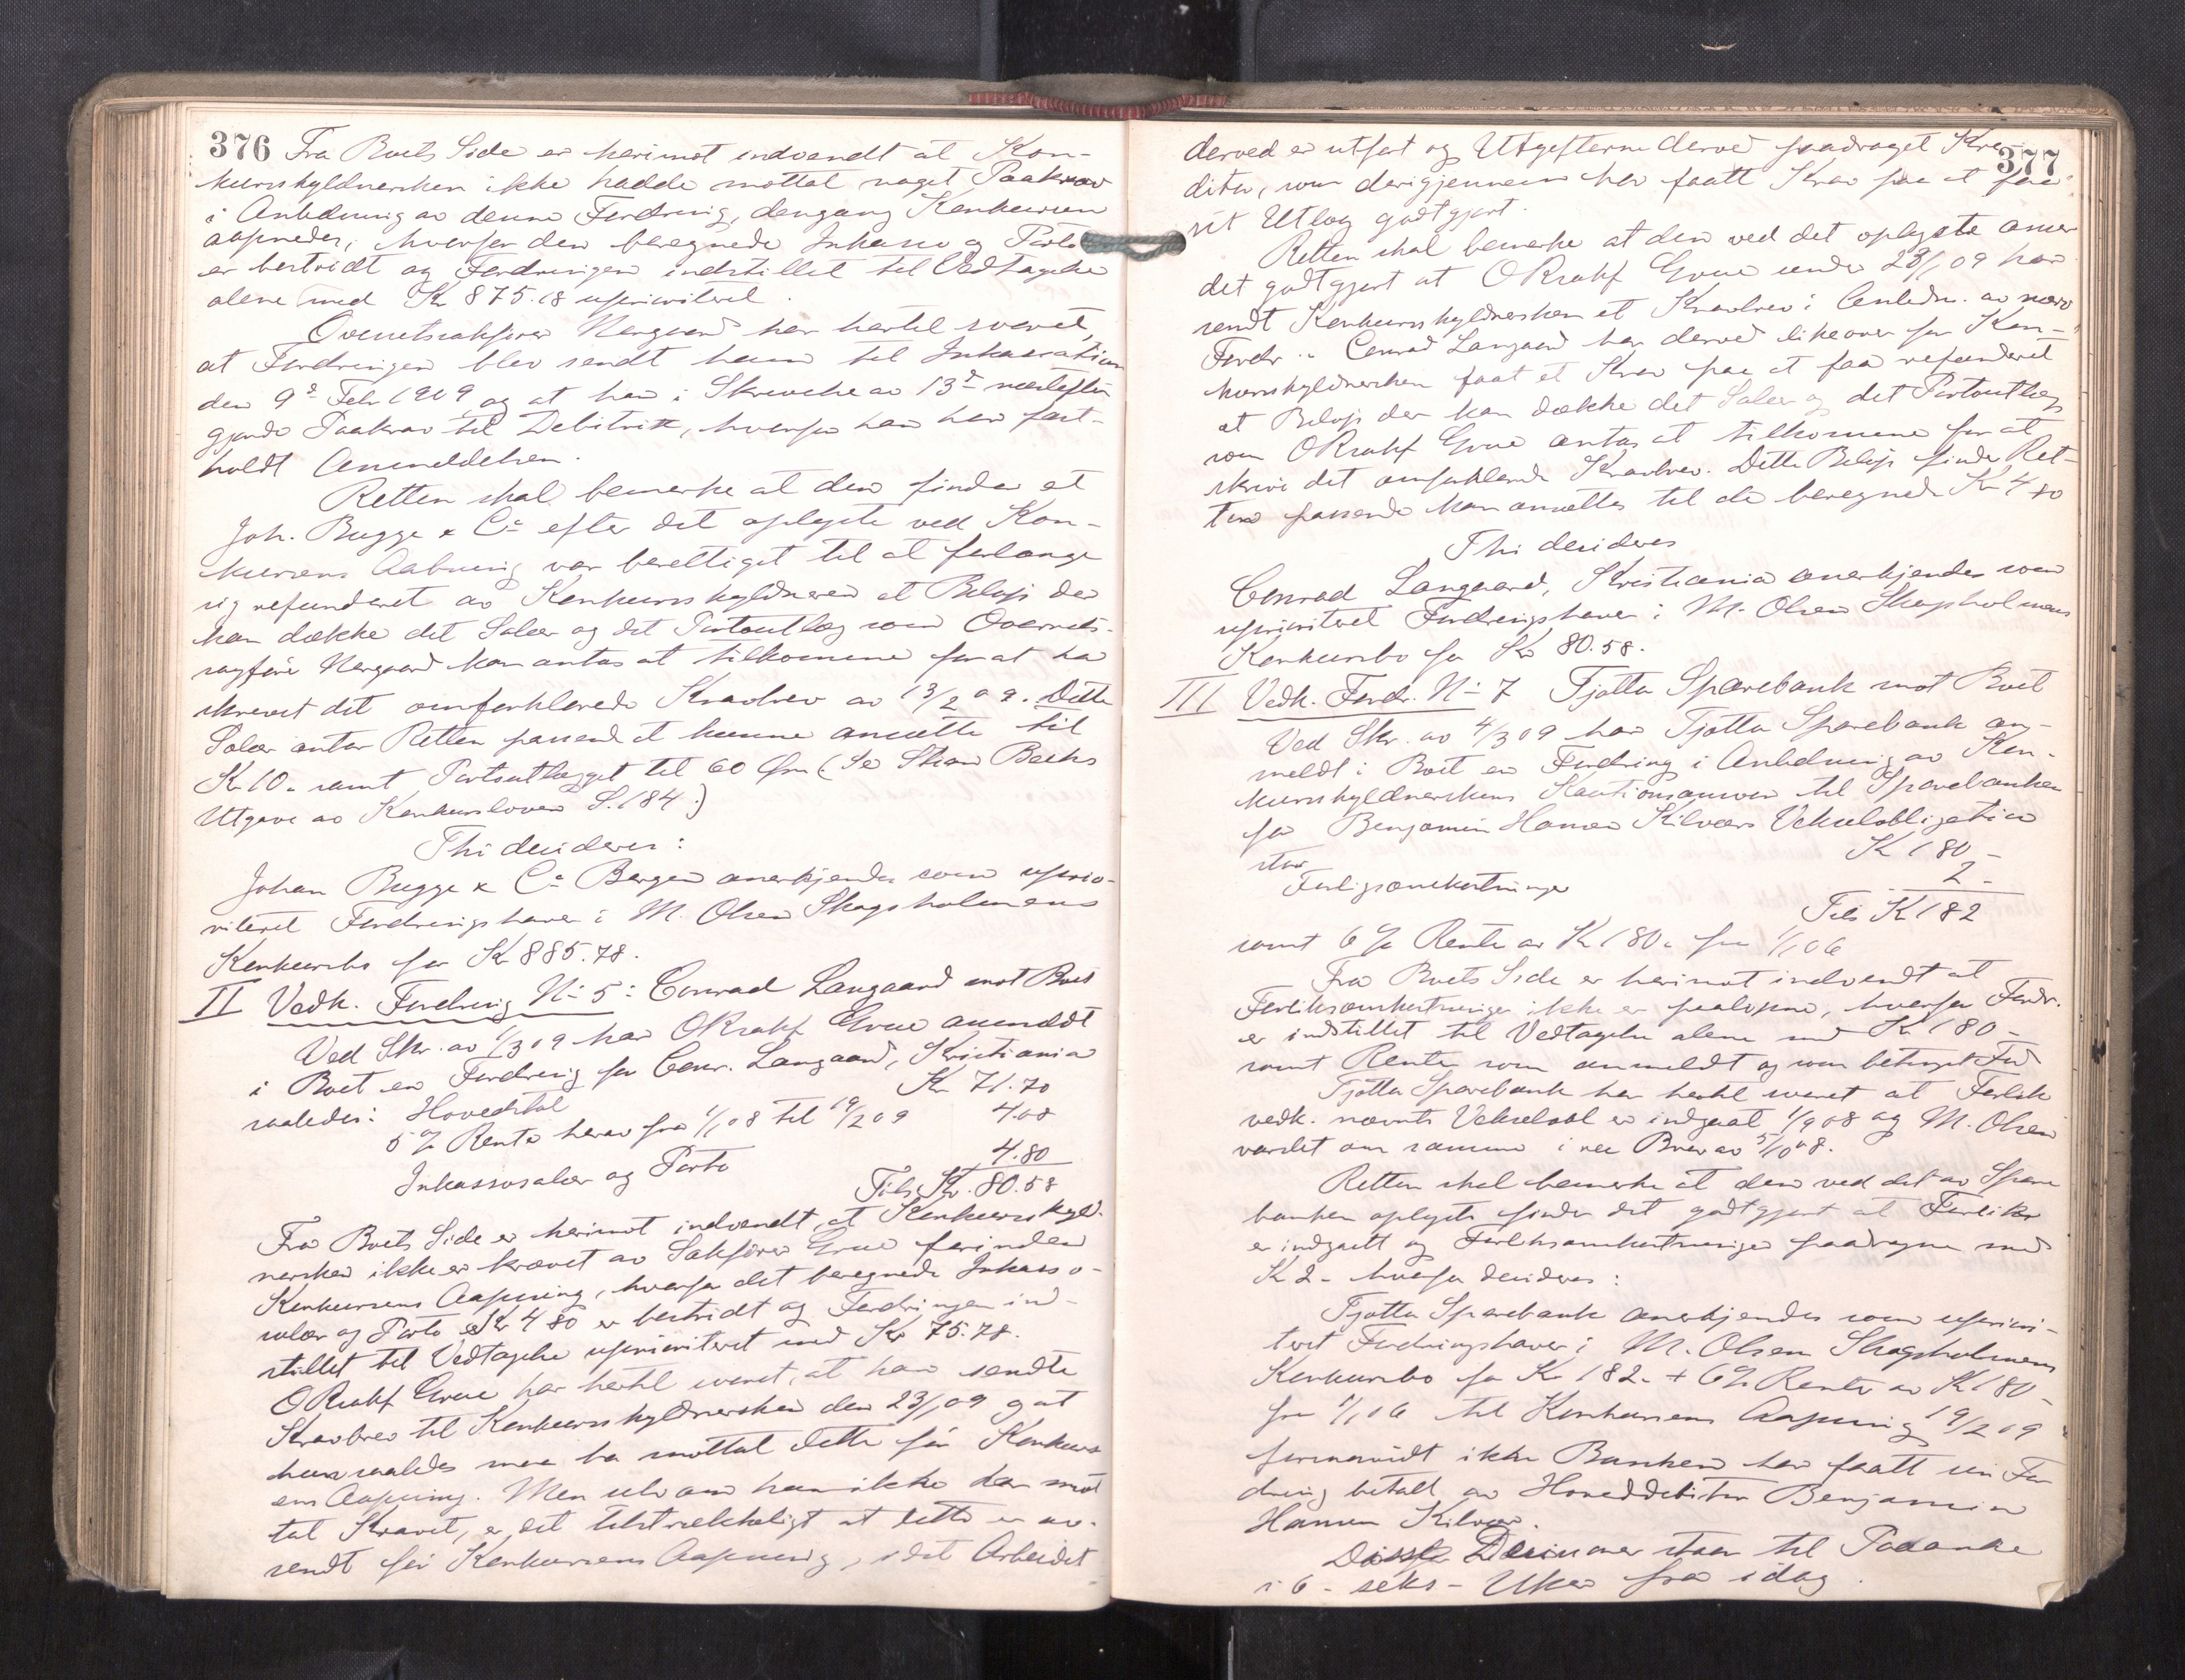 376 Fra Boets Side er herimot indvendt at Kon-
kursskyldnersken ikke hadde mottat noget Paakrav
i Anledning av denne Fordring, dengang Konkursen
aapnedes, hvorfor den beregnede Inkasso og Porto
er bestridt og Fordringen indstillet til Vedtagelse
alene med Kr 875.18 uprioritert.
Overretssakfører Nergaard har hertil svaret,
at Fordringen blev sendt ham til Inkassation
den 9de Febr 1909 og at han i Skrivelse av 13de næstefter
gjorde Paakrav til Debitrix, hvorfor han har fast-
holdt Anmeldelsen.
Retten skal bemerke at den finder at
Joh. Bugge & Co efter det oplyste ved Kon-
kursens Aabning var berettiget til at forlange
sig refunderet av Konkursskyldneren et Beløp der
kan dække det Salær og det Portoutlæg som Overrets-
sagfører Nergaard kan antas at tilkomme for at ha
skrevet det omforklarede Kravbrev av 13/2 09. Dette
Salær antar Retten passende at kunne ansætte til
Kr 10.- samt Portoutlægget til 60 Øre (Se Skan Bechs
Utgave av Konkursloven S. 184.)
Thi decideres:
Johan Bugge & Co Bergen anerkjendes som uprio-
ritert Fordringshaver i M. Olsen Skogsholmens
Konkursbo for Kr 885.78.
II Vedk. Fordring No 5: Conrad Langaard mot Boet
Ved Skr. av 1/3 09 har ORsakf Grue anmeldt
i Boet en Fordring for Conr. Langaard, Kristiania
saaledes: Hovedstol Kr 71.70
5 % Rente herav fra 1/1 08 til 19/2 09 4.08
Inkassosalær og Porto 4.80
Tils. Kr. 80.58
Fra Boets Side er herimot indvendt at Konkursskyld-
nersken ikke er krævet av Sakfører Grue forinden
Konkursens Aapning, hvorfor det beregnede Inkasso-
salær og Porto Kr 4 80 er bestridt og Fordringen ind-
stillet til Vedtagelse uprioritert med Kr 75.78.
ORsakf Grue har hertil svaret, at han sendte
Kravbrev til Konkursskyldnersken den 23/1 09 og at
hun saaledes maa ha mottat dette før Konkurs
ens Aapning. Men selv om hun ikke har mot
tat Kravet, er det tilstrækkeligt at dette er av-
sendt før Konkursens Aapning, idet Arbeidet
377
derved er utført og Utgifterne derved paadraget Kre-
ditor, som derigjennem har faatt Krav paa at faa
sit Utlæg godtgjort.
Retten skal bemerke at den ved det oplyste anser
det godtgjort at ORsakf Grue under 23/1 09 har
sendt Konkursskyldnersken et Kravbrev i Anledn. av nærv
Fordr. Conrad Langaard har derved likeover for Kon-
kursskyldnersken faat et Krav paa at faa refunderet
et Beløp der kan dække det Salær og det Portoutlæg
som ORsakf Grue antas at tilkomme for at
skrive det omforklarede Kravbrev. Dette Beløp finder Ret-
ten passende kan ansættes til de beregnede Kr 4 80
Thi decideres
Conrad Langaard, Kristiania anerkjendes som
uprioritert Fordringshaver i M. Olsen Skogsholmens
Konkursbo for Kr 80.58.
III Vedk. Fordr. No 7 Tjøtta Sparebank mot Boet
Ved Skr. av 4/3 09 har Tjøtta Sparebank an-
meldt i Boet en Fordring i Anledning av Kon-
kursskyldnerskens Kautionsansvar til Sparebanken
for Benjamin Hansen Kilværs Vekselobligation
stor Kr 180 -
Forligsomkostninger 2 -
Tils Kr 182
samt 6 % Rente av Kr 180.- fra 1/1 06
Fra Boets Side er herimot indvendt at
Forliksomkostninger ikke er paaløpne, hvorfor Fordr.
er indstillet til Vedtagelse alene med Kr 180 -
samt Renter som anmeldt og som betinget Ford
Tjøtta Sparebank har hertil svaret at Forlik
vedk. nævnte Vekselobl er indgaat 1/9 08 og M. Olsen
varslet om samme i rec Brev av 5/10 08.
Retten skal bemerke at den ved det av Spare
banken oplyste finder det godtgjort at Forliket
er indgaatt og Forliksomkostninger paadragne med
Kr 2 - hvorfor decideres:
Tjøtta Sparebank anerkjendes som upriori-
tert Fordringshaver i M. Olsen Skogsholmens
Konkursbo for Kr 182.- + 6 % Rente av Kr 180 -
fra 1/1 06 til Konkursens Aapning 19/2 09
forsaavidt ikke Banken har faatt sin For
dring betalt av Hoveddebitor Benjamin
Hansen Kilvær.
Disse Decisioner staar til Paaanke
i 6 - seks - Uker fra idag.